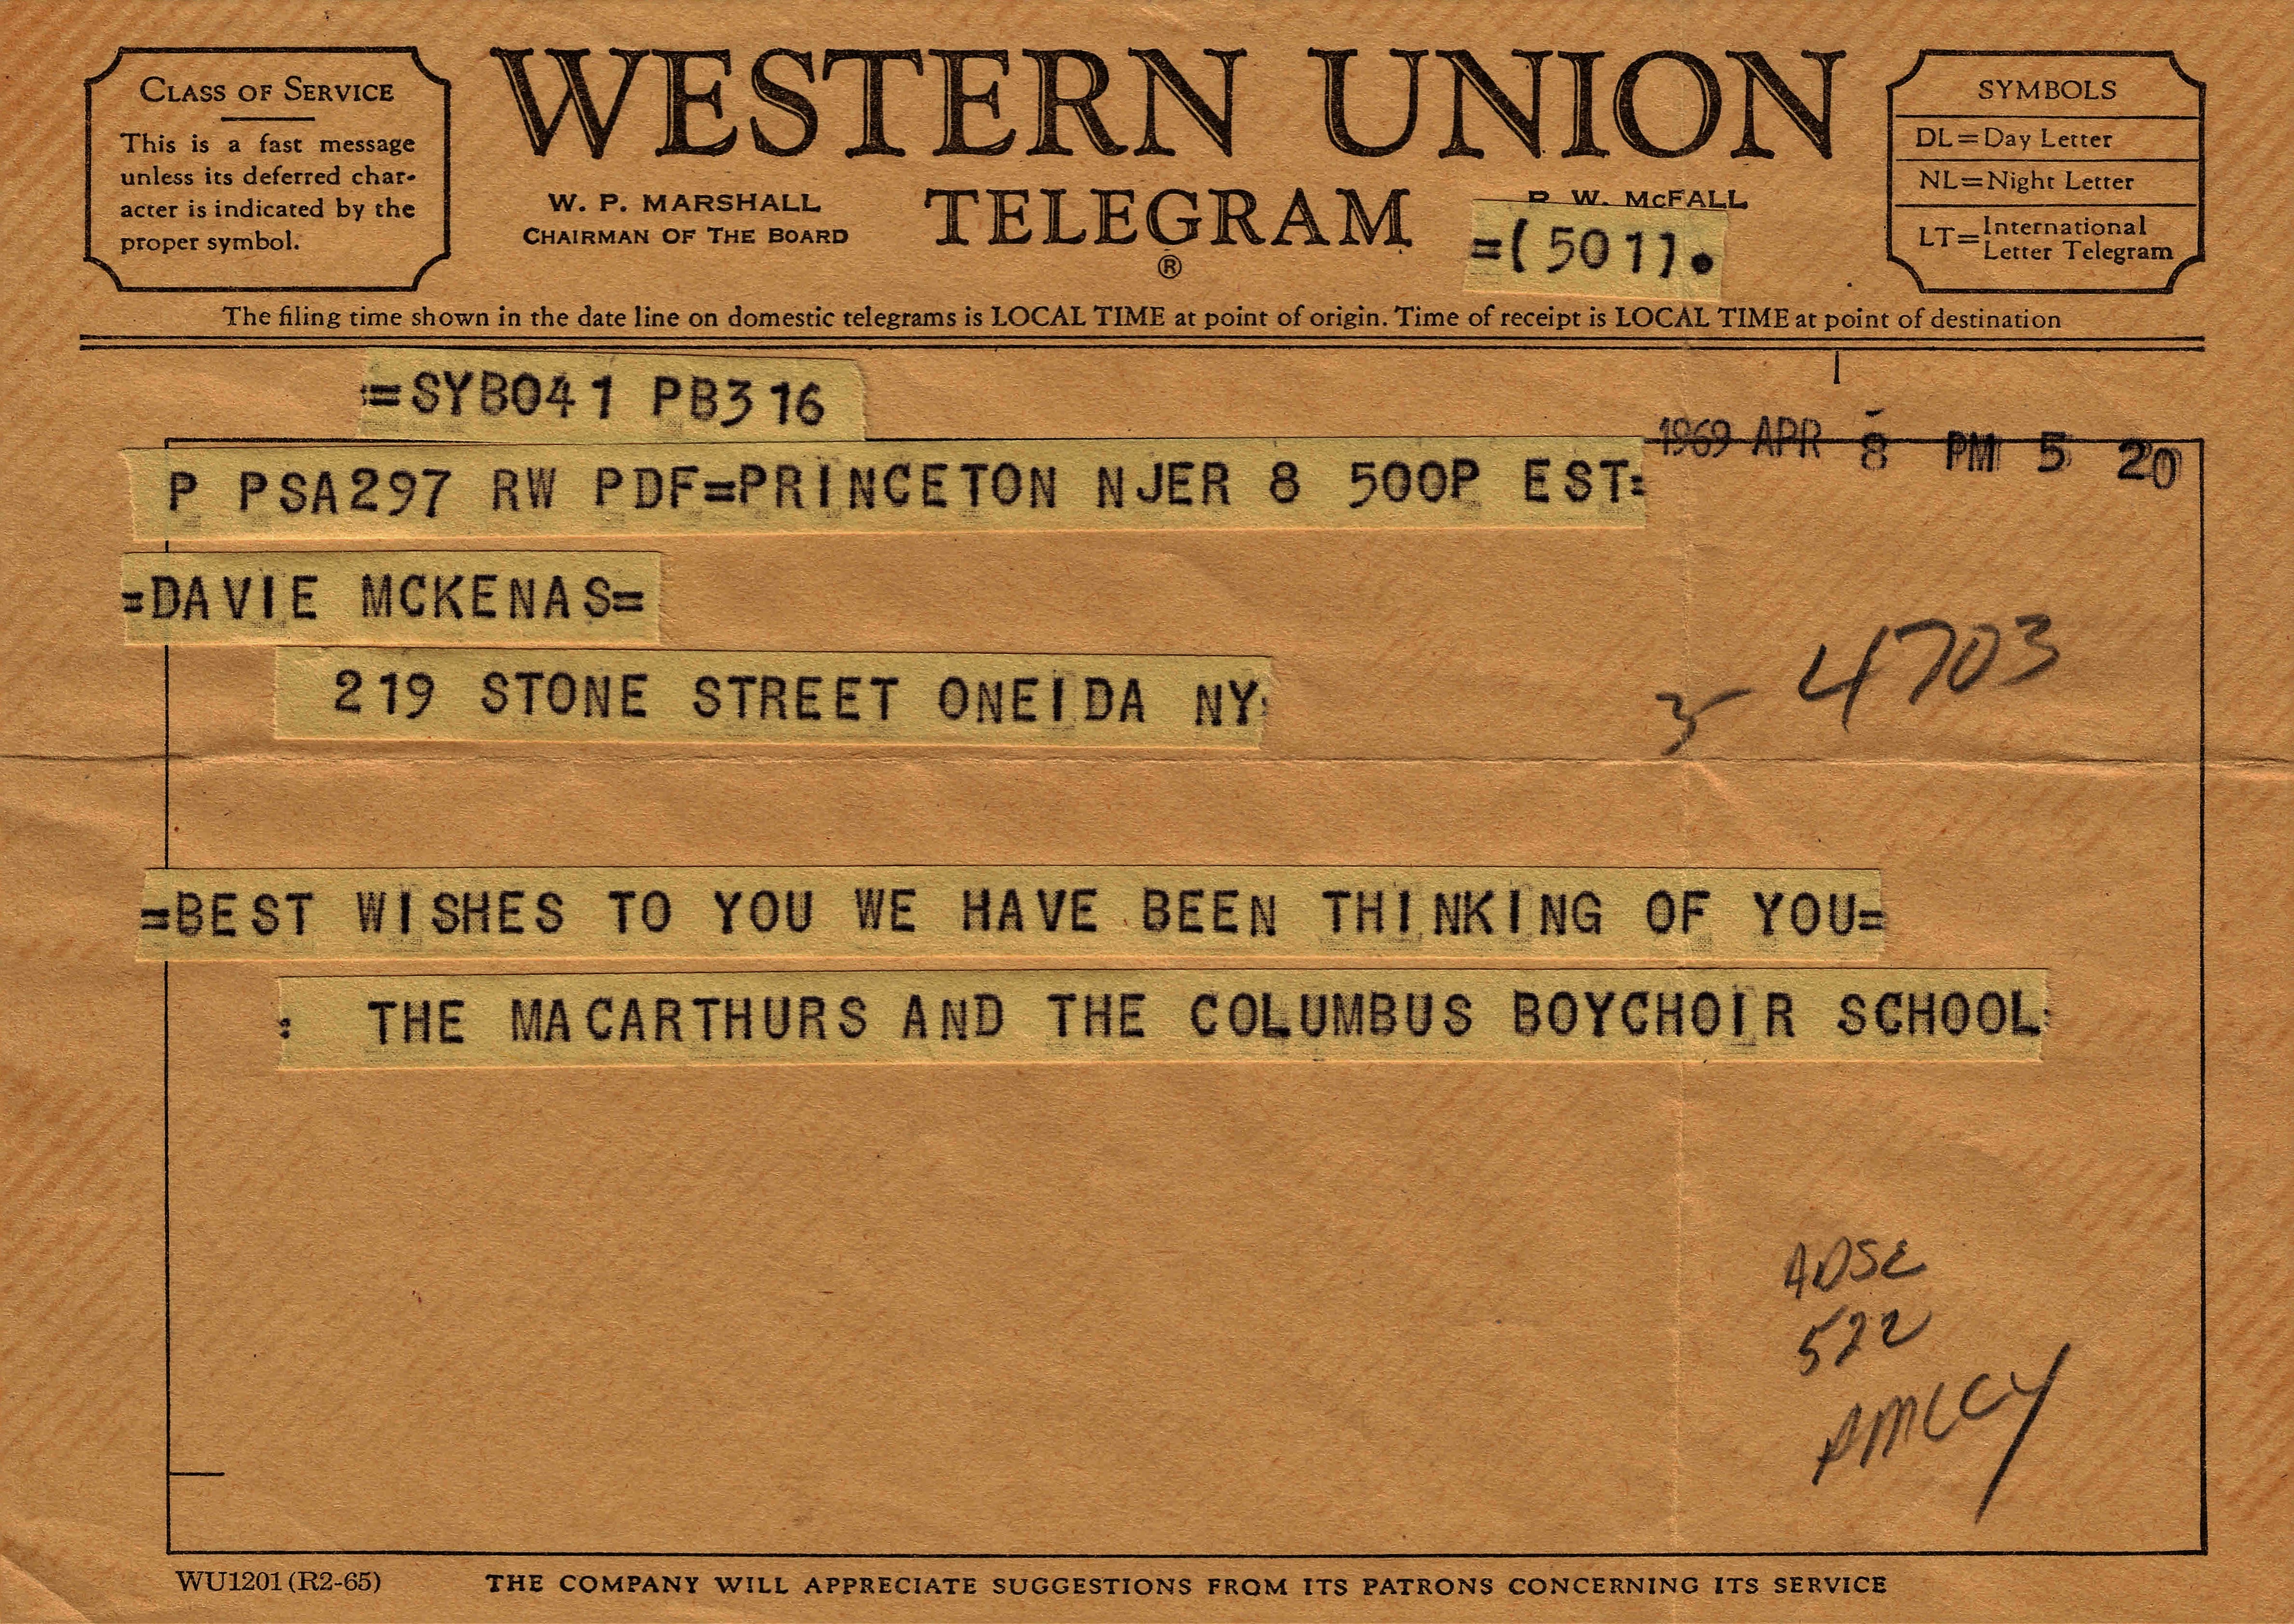 CLASS OF SERVICE
This is a fast message
unless its deferred char-
acter is indicated by the
proper symbol.
WESTERN UNION
TELEGRAM
®
W. P. MARSHALL
CHAIRMAN OF THE BOARD
W. McFALL
=(501).
SYMBOLS
DL=Day Letter
NL=Night Letter
LT=International
Letter Telegram
The filing time shown in the date line on domestic telegrams is LOCAL TIME at point of origin. Time of receipt is LOCAL TIME at point of destination
=SYB041 PB316
1969 APR 8 PM 5 20
P PSA297 RW PDF=PRINCETON NJER 8 500P EST=
=DAVIE MCKENAS=
219 STONE STREET ONEIDA NY
4703
=BEST WISHES TO YOU WE HAVE BEEN THINKING OF YOU=
: THE MACARTHURS AND THE COLUMBUS BOYCHOIR SCHOOL
522
WU1201 (R2-65)
THE COMPANY WILL APPRECIATE SUGGESTIONS FROM ITS PATRONS CONCERNING ITS SERVICE